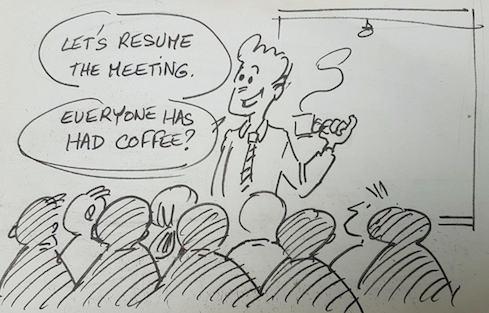 LET'S RESUME
THE MEETING.
EVERYONE HAS
HAD COFFEE?